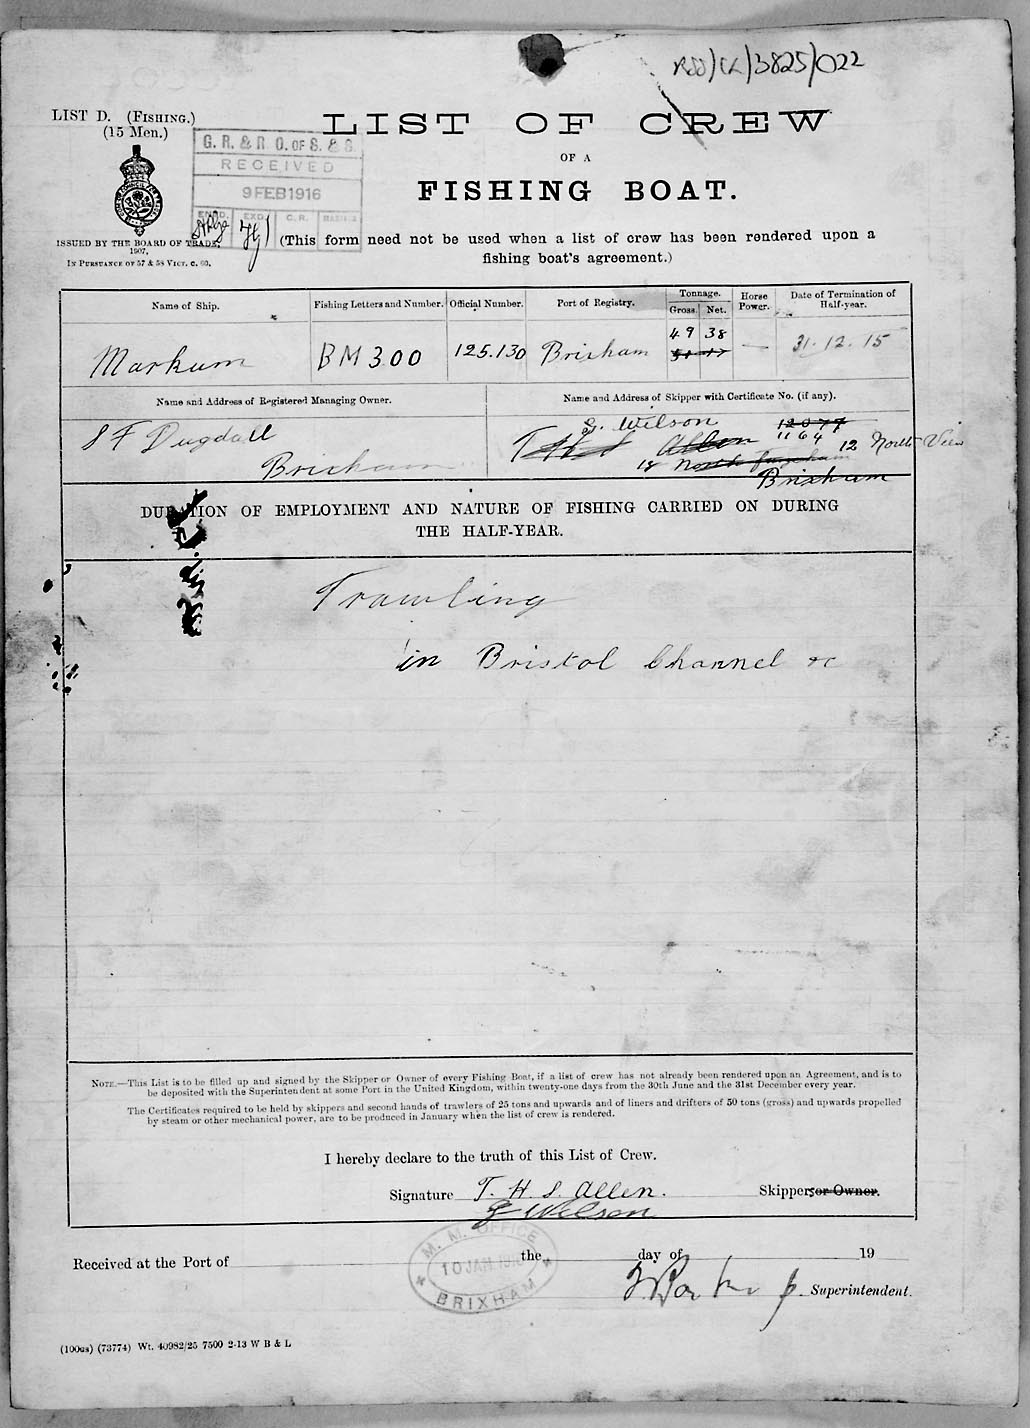 RSS/CL/3825/022
LIST D. (FISHING.)
(15 Men.)
LIST OF CREW
OF A
FISHING BOAT.
G. R. & R. O. OF S. & S.
RECEIVED
9 FEB 1916
ENTD. EXD. C. R.
ISSUED BY THE BOARD OF TRADE,
1907,
IN PURSUANCE OF 57 & 58 VICT. C. 60.
(This form need not be used when a list of crew has been rendered upon a
fishing boat's agreement.)
Name of Ship. Fishing Letters and Number. Official Number. Port of Registry. Tonnage. Gross. Net. Horse Power. Date of Termination of Half-year.
Markum BM 300 125.130 Brixham 49 38 — 31.12.15
Name and Address of Registered Managing Owner. Name and Address of Skipper with Certificate No. (if any).
S F Dugdall
Brixham
G. Wilson 12077
Allen 1164 12 North View
18 North
Brixham
DURATION OF EMPLOYMENT AND NATURE OF FISHING CARRIED ON DURING
THE HALF-YEAR.
Trawling
in Bristol Channel &c
NOTE.—This List is to be filled up and signed by the Skipper or Owner of every Fishing Boat, if a list of crew has not already been rendered upon an Agreement, and is to
be deposited with the Superintendent at some Port in the United Kingdom, within twenty-one days from the 30th June and the 31st December every year.
The Certificates required to be held by skippers and second hands of trawlers of 25 tons and upwards and of liners and drifters of 50 tons (gross) and upwards propelled
by steam or other mechanical power, are to be produced in January when the list of crew is rendered.
I hereby declare to the truth of this List of Crew.
Signature T. H. S. Allen. Skippers or Owner.
G Wilson
Received at the Port of the day of 19
M. M. OFFICE
10 JAN 1916
BRIXHAM
Superintendent.
(100us) (73774) Wt. 40982/25 7500 2-13 W B & L